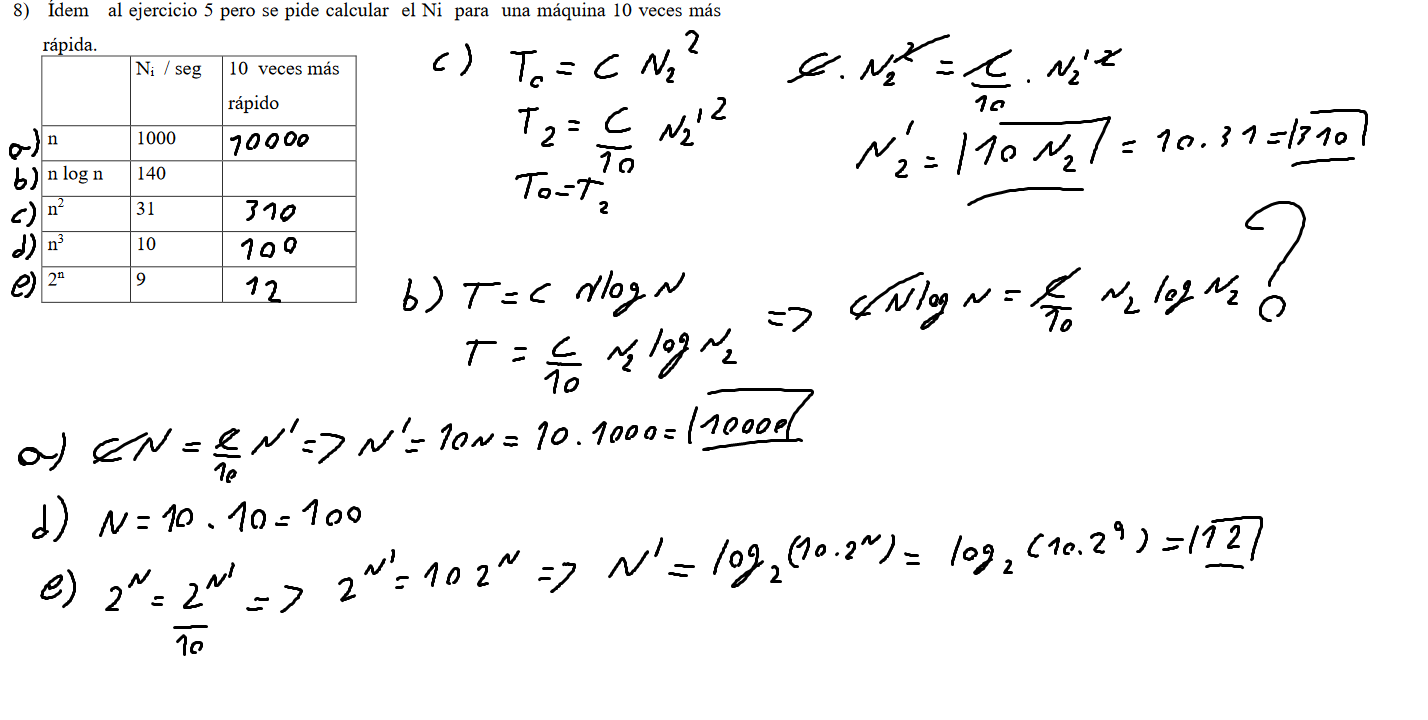 8) Ídem al ejercicio 5 pero se pide calcular el Ni para una máquina 10 veces más
rápida.
Nᵢ / seg 10 veces más rápido
a) n 1000 10000
b) n log n 140
c) n² 31 310
d) n³ 10 100
e) 2ⁿ 9 12
c) T₀ = C N₂²
T₂ = C/10 N₂'²
T₀=T₂
C . N₂² = C/10 . N₂'²
N₂' = |10 N₂| = 10.31=|310|
b) T=C N log N
T = C/10 N₂ log N₂
=> C N log N = C/10 N₂ log N₂ ?
a) C N = C/10 N' => N' = 10N = 10.1000=|10000|
d) N = 10 . 10 = 100
e) 2ᴺ = 2ᴺ'/10 => 2ᴺ' = 10 2ᴺ => N' = log₂(10.2ᴺ) = log₂(10.2⁹) = |12|